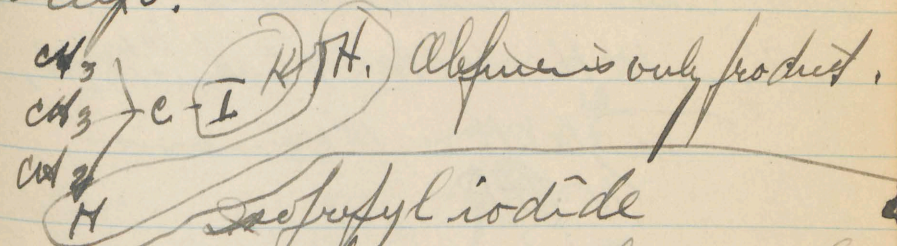 CH3
CH3 - C - I K OH. Olefine is only product.
CH2
H
Isopropyl iodide